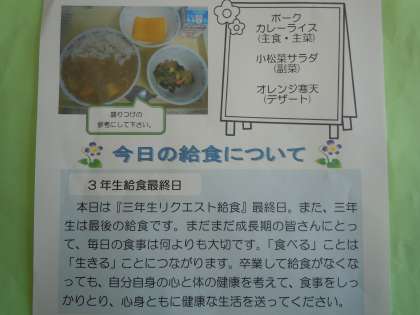 ポーク
カレーライス
(主食・主菜)
小松菜サラダ
(副菜)
オレンジ寒天
(デザート)
盛りつけの
参考にして下さい。
今日の給食について
３年生給食最終日
本日は『三年生リクエスト給食』最終日。また、三年
生は最後の給食です。まだまだ成長期の皆さんにとっ
て、毎日の食事は何よりも大切です。「食べる」ことは
「生きる」ことにつながります。卒業して給食がなくなっ
ても、自分自身の心と体の健康を考えて、食事をしっ
かりとり、心身ともに健康な生活を送ってください。